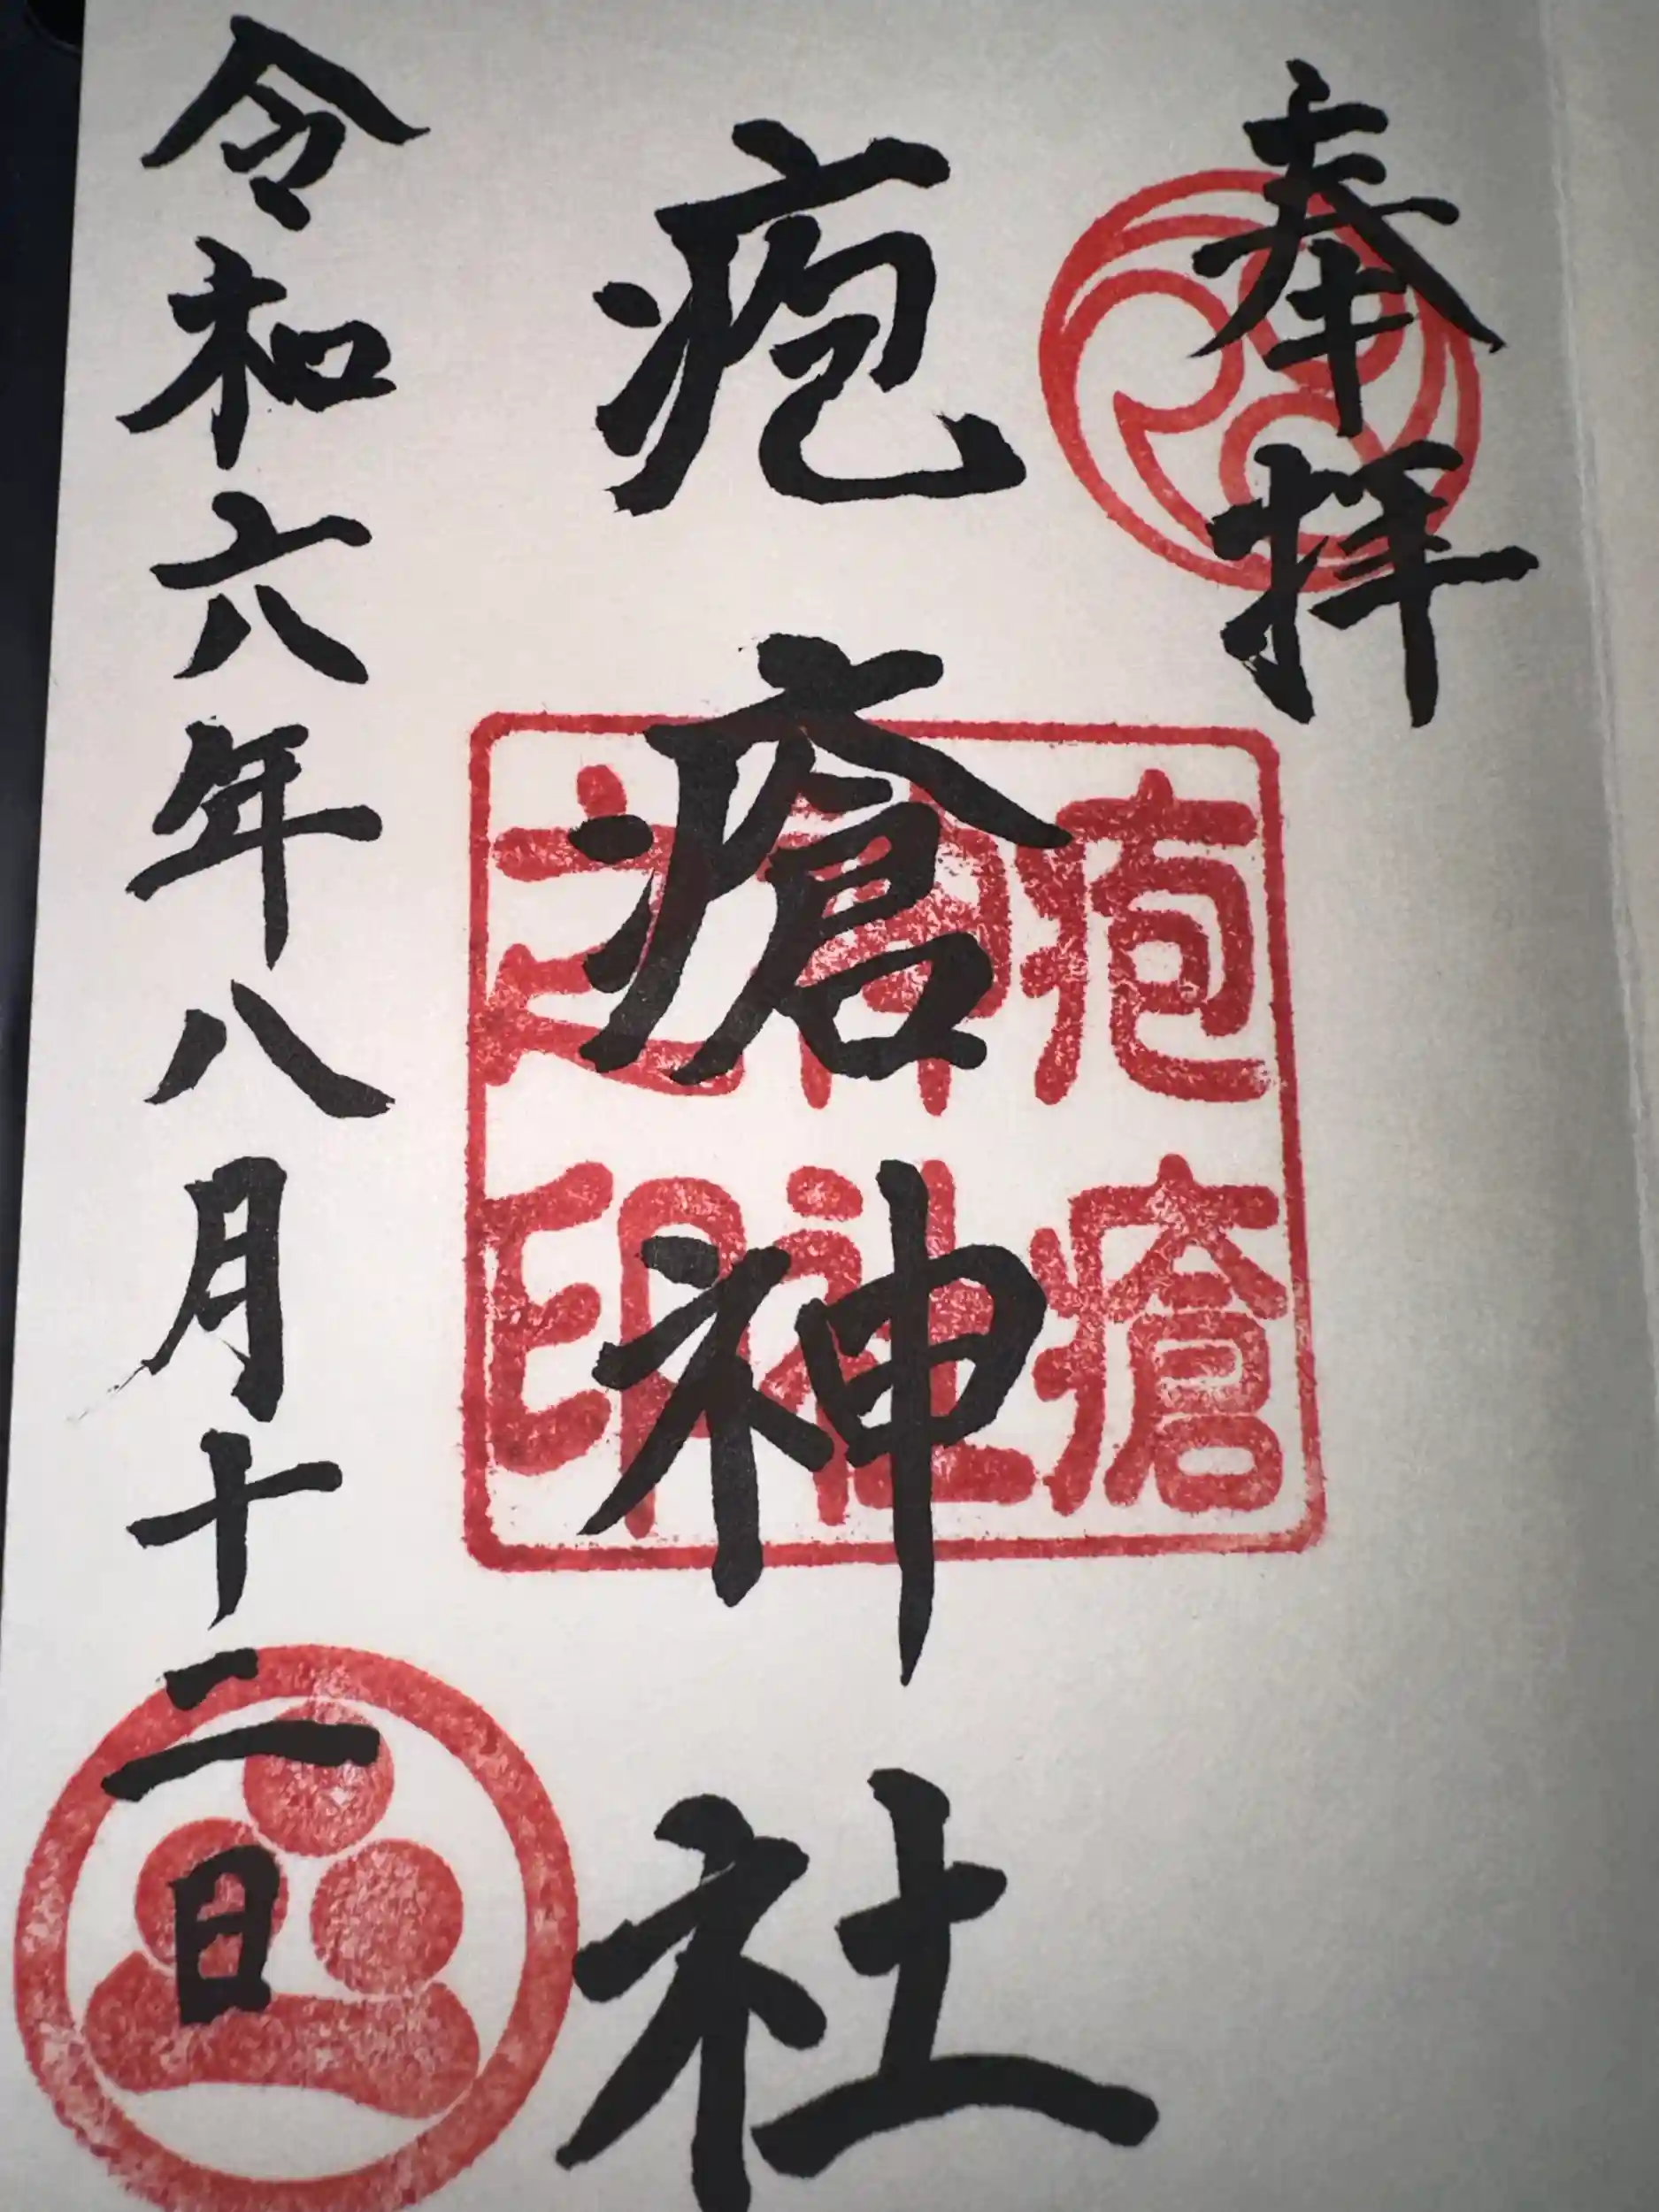 奉拝
疱瘡神社
令和六年八月十二日
疱瘡
神社
之印